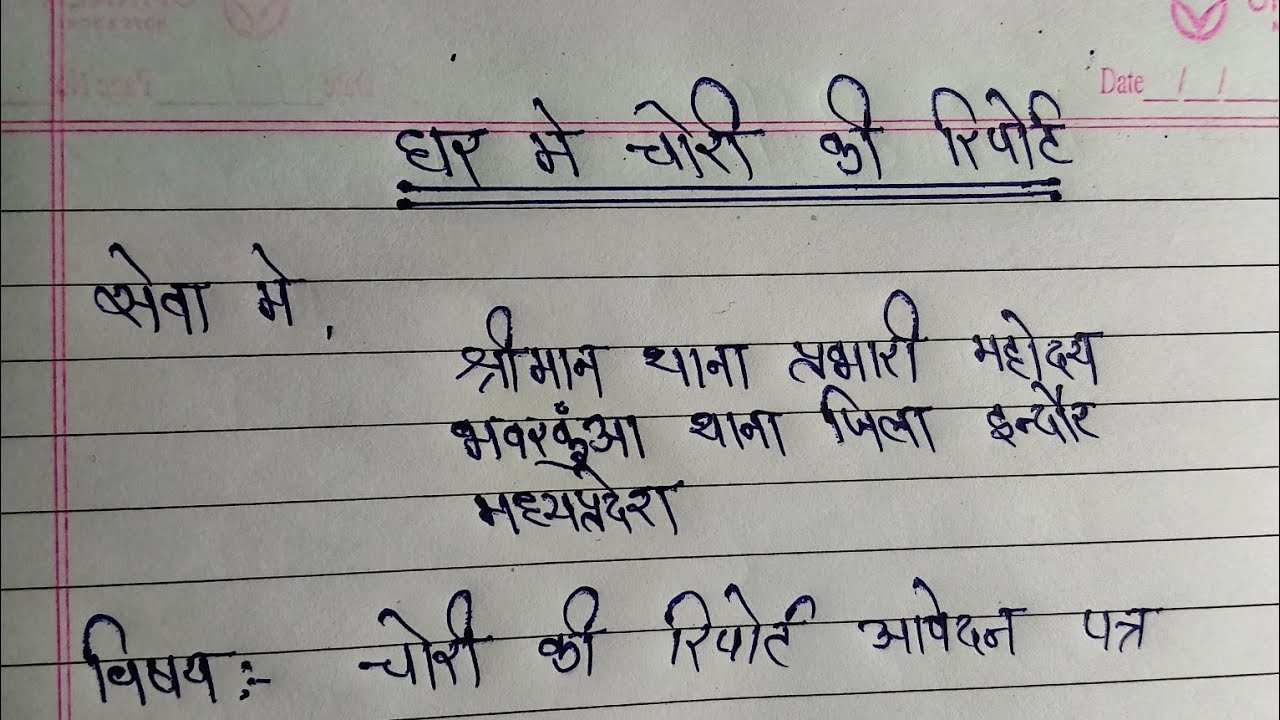 Date / /
घर मे चोरी की रिपोर्ट
सेवा मे,
श्रीमान थाना प्रभारी महोदय
भवरकुँआ थाना जिला इन्दौर
मध्यप्रदेश
विषय :- चोरी की रिपोर्ट आवेदन पत्र